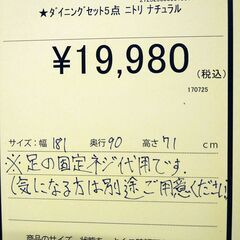 ★ダイニングセット5点 ニトリ ナチュラル
¥19,980
(税込)
170725
サイズ:幅 181 奥行 90 高さ 71 cm
※足の固定ネジ代用です。
(気になる方は別途ご用意ください)